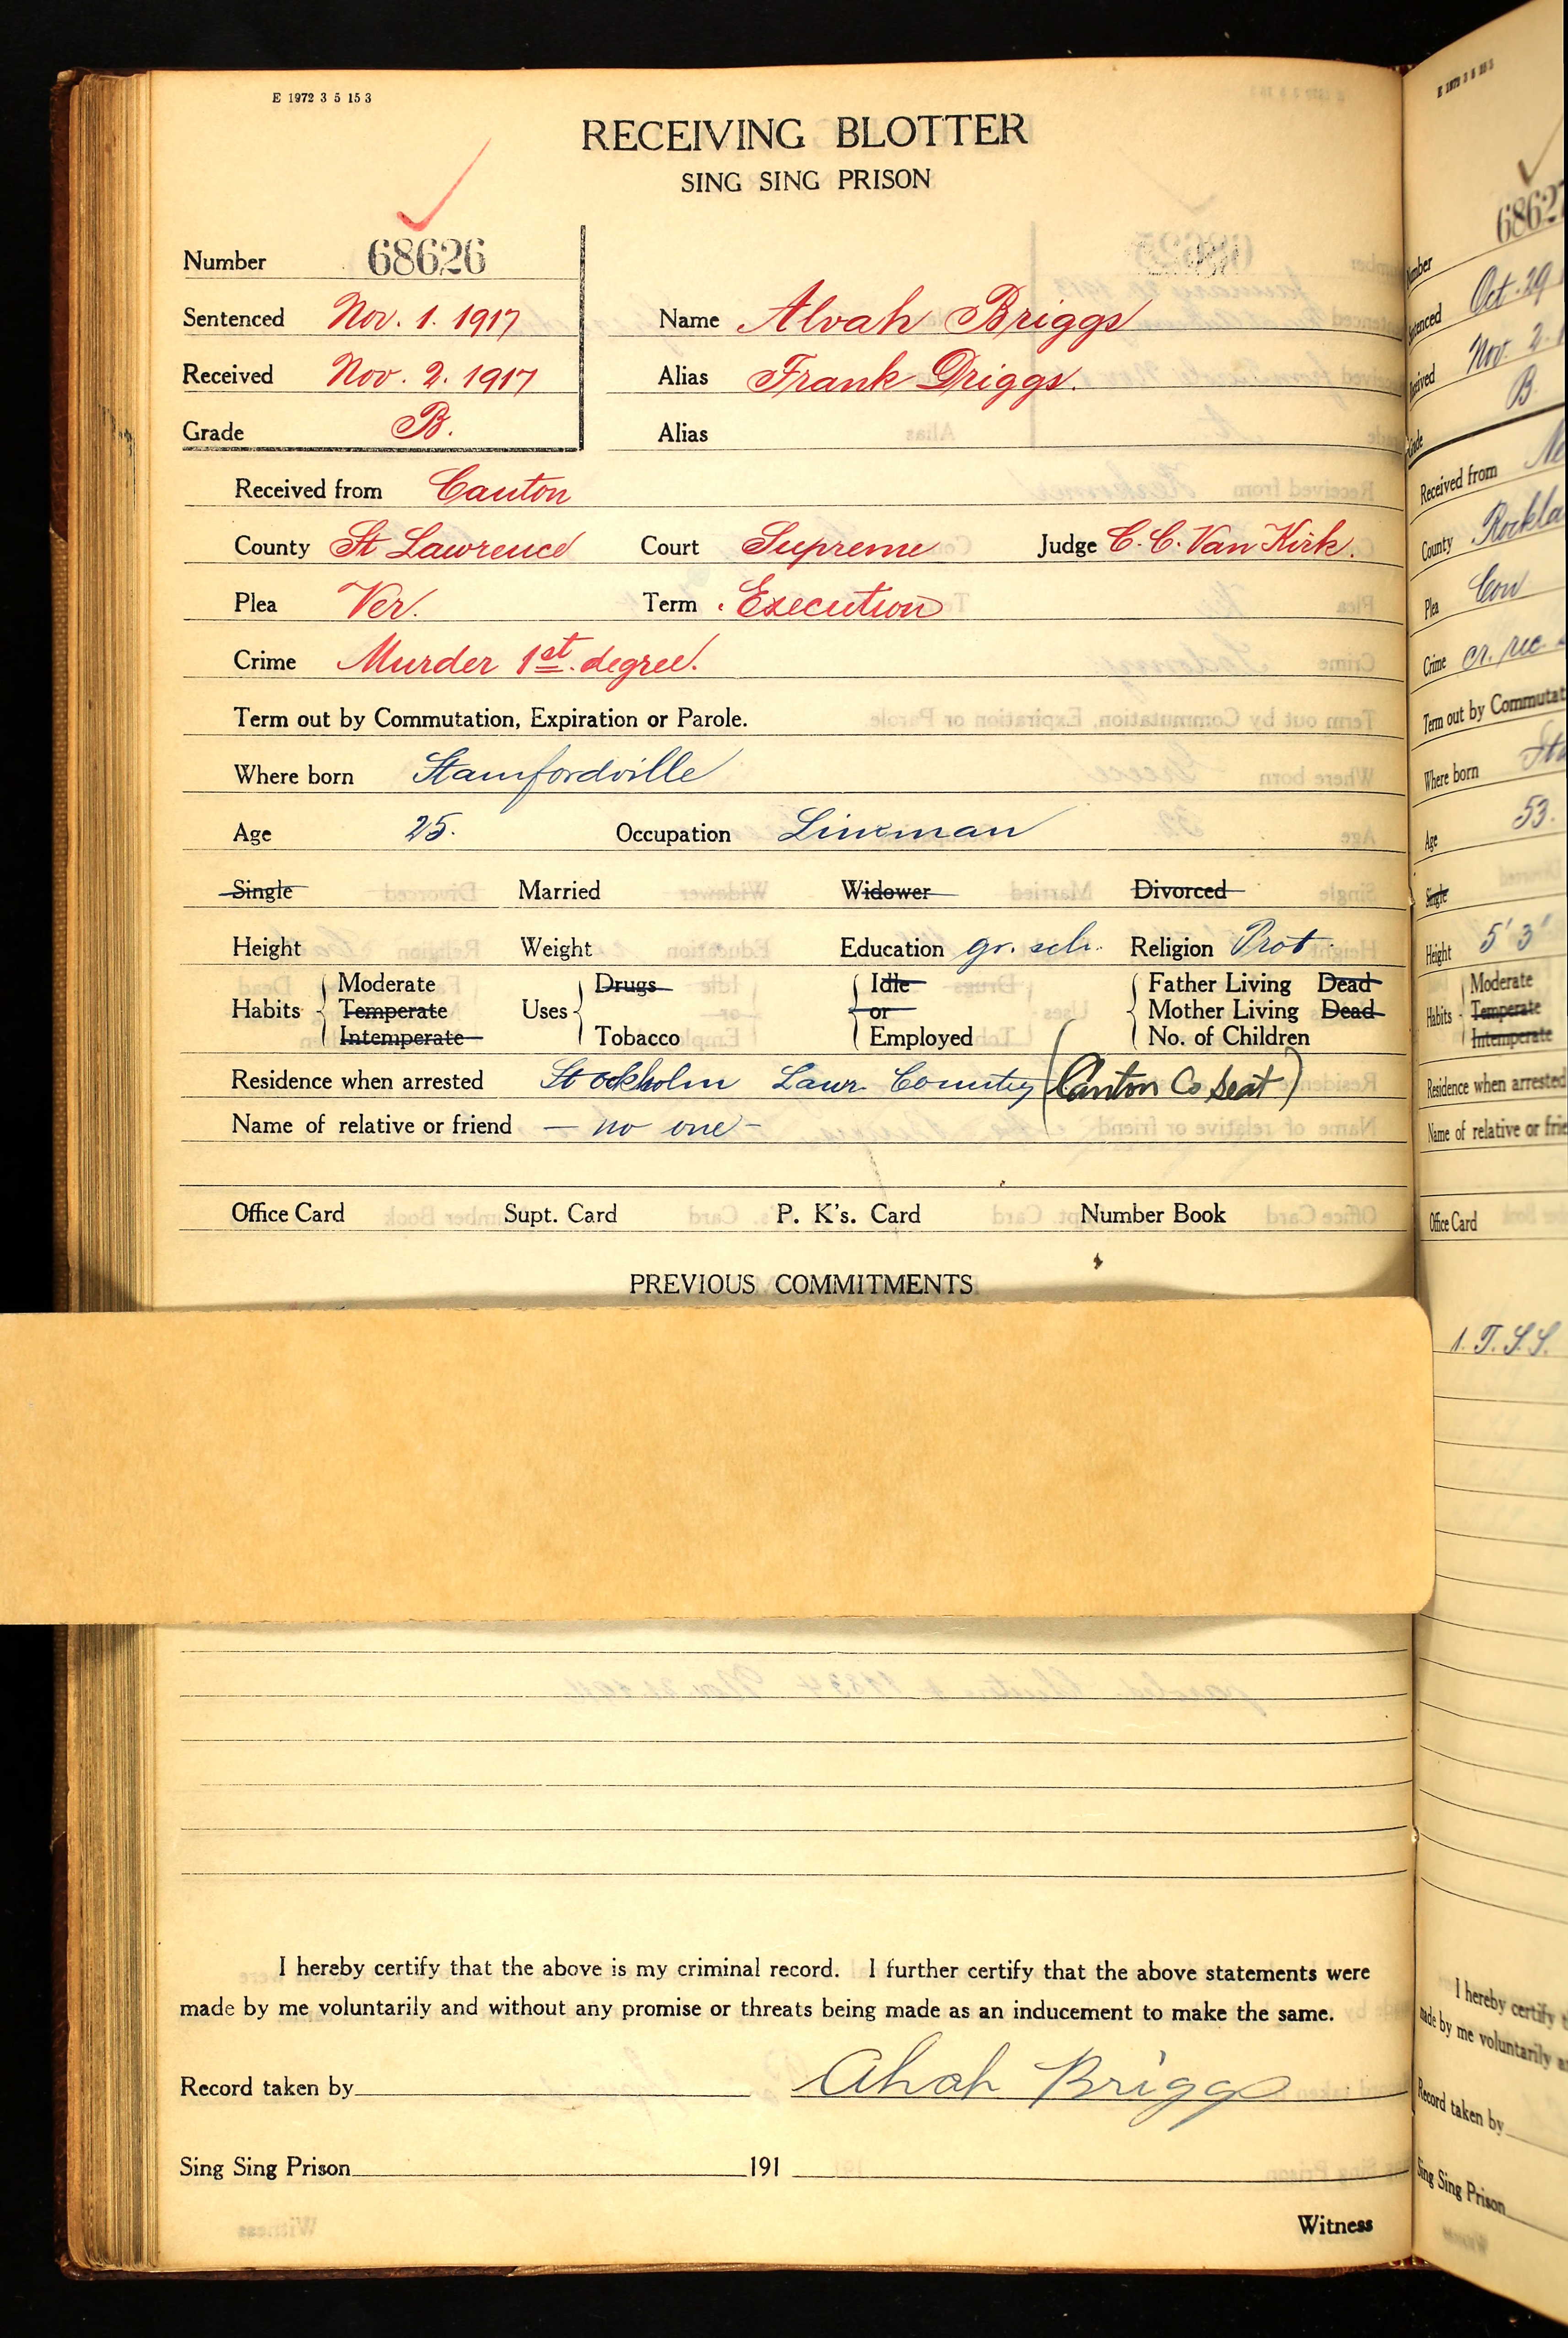 E 1972 3 5 15 3
RECEIVING BLOTTER
SING SING PRISON
Number 68626
Sentenced Nov. 1. 1917 Name Alvah Briggs
Received Nov. 2. 1917 Alias Frank Driggs.
Grade B. Alias
Received from Canton
County St Lawrence Court Supreme Judge C. C. Van Kirk.
Plea Ver. Term Execution
Crime Murder 1st. degree.
Term out by Commutation, Expiration or Parole.
Where born Stamfordville
Age 25. Occupation Lineman
Single Married Widower Divorced
Height Weight Education gr. sch. Religion Prot.
Habits Moderate Temperate Intemperate Uses Drugs Tobacco Idle or Employed Father Living Dead Mother Living Dead No. of Children
Residence when arrested Stockholm Lawr. County (Canton Co Seat)
Name of relative or friend — no one —
Office Card Supt. Card P. K's. Card Number Book
PREVIOUS COMMITMENTS
I hereby certify that the above is my criminal record. I further certify that the above statements were
made by me voluntarily and without any promise or threats being made as an inducement to make the same.
Record taken by Alvah Briggs
Sing Sing Prison 191
Witness
68627
Number
Sentenced Oct. 29
Received Nov 2
Grade B
Received from
County Rockla
Plea Con
Crime cr. rec.
Term out by Commutat
Where born
Age 53.
Single
Height 5' 3"
Habits Moderate Temperate Intemperate
Residence when arrested
Name of relative or frie
Office Card
1. T. S. S.
I hereby certify t
made by me voluntarily a
Record taken by
Sing Sing Prison